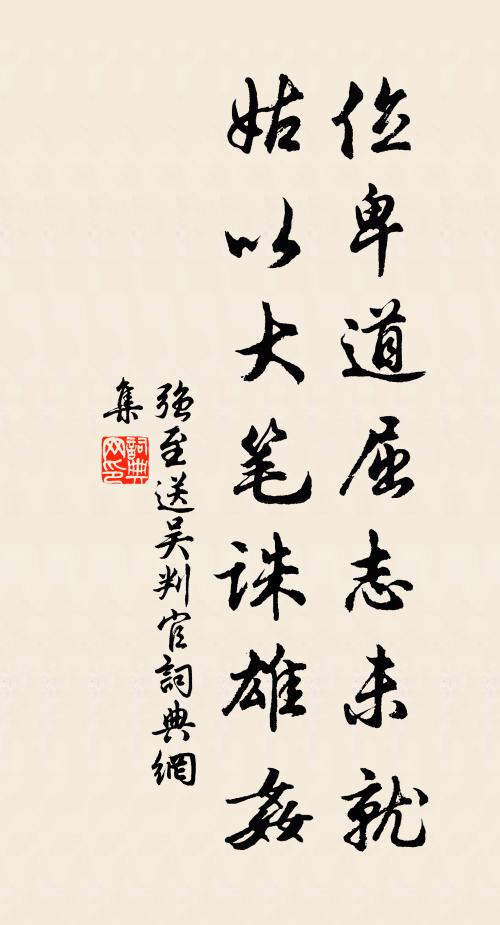 位卑道屈志未就
姑以大笔誅雄姦
强至送吴判官詞典網
集
詞典网印